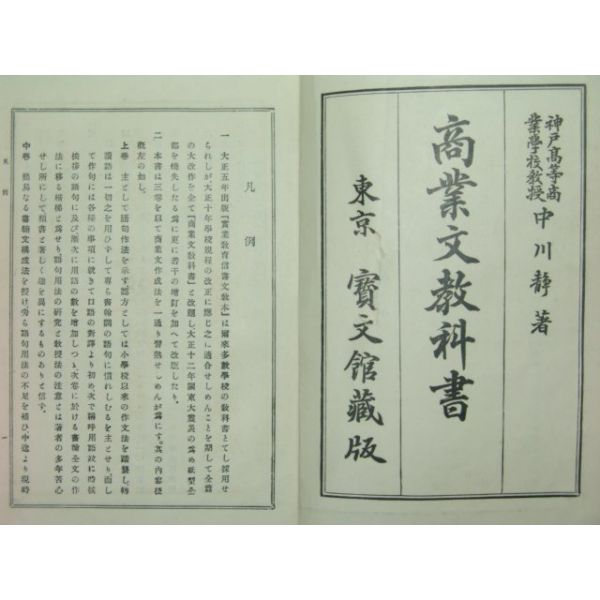 神戸高等商
業學校教授
中川靜著
商業文教科書
東京 寶文館藏版
凡例
一 大正五年出版『實業教育信書文教本』は爾來多數學校の教科書としてし採用せ
られしが大正十年學校規程の改正に應じ之に適合せしめんことを期して全篇
の大改作を企て『商業文教科書』と改題し大正十二年關東大震災の爲め紙型全
部を燒失したる爲に更に若干の增訂を加へて改版したり。
二 本書は三卷を以て商業文作成法を一通り習熟せしめんが爲にす。其の內容後
概左の如し。
上卷 主として語句作法を示す部方としては小學校以來の作文法を踏襲し、特
語は一切之を用ひずして專ら書翰體の語句に慣れしむるを主とせり。而し
て作句には各種の事項に就きて口語の對譯より初め、次で稱呼用語故に時候
挨拶の語句に及び、漸次に用語の數を增加しつゝ次卷に於ける書翰全文の作
法に移る楷梯と爲せり。語句用法の硏究と教授法の注意とは著者の多年苦心
せし所にして類書と著しく趣を異にするものありと信ず。
中卷 簡易なる書翰文構成法を授け、旁ら語句用法の不足を補ひ、中途より現時
凡例
一